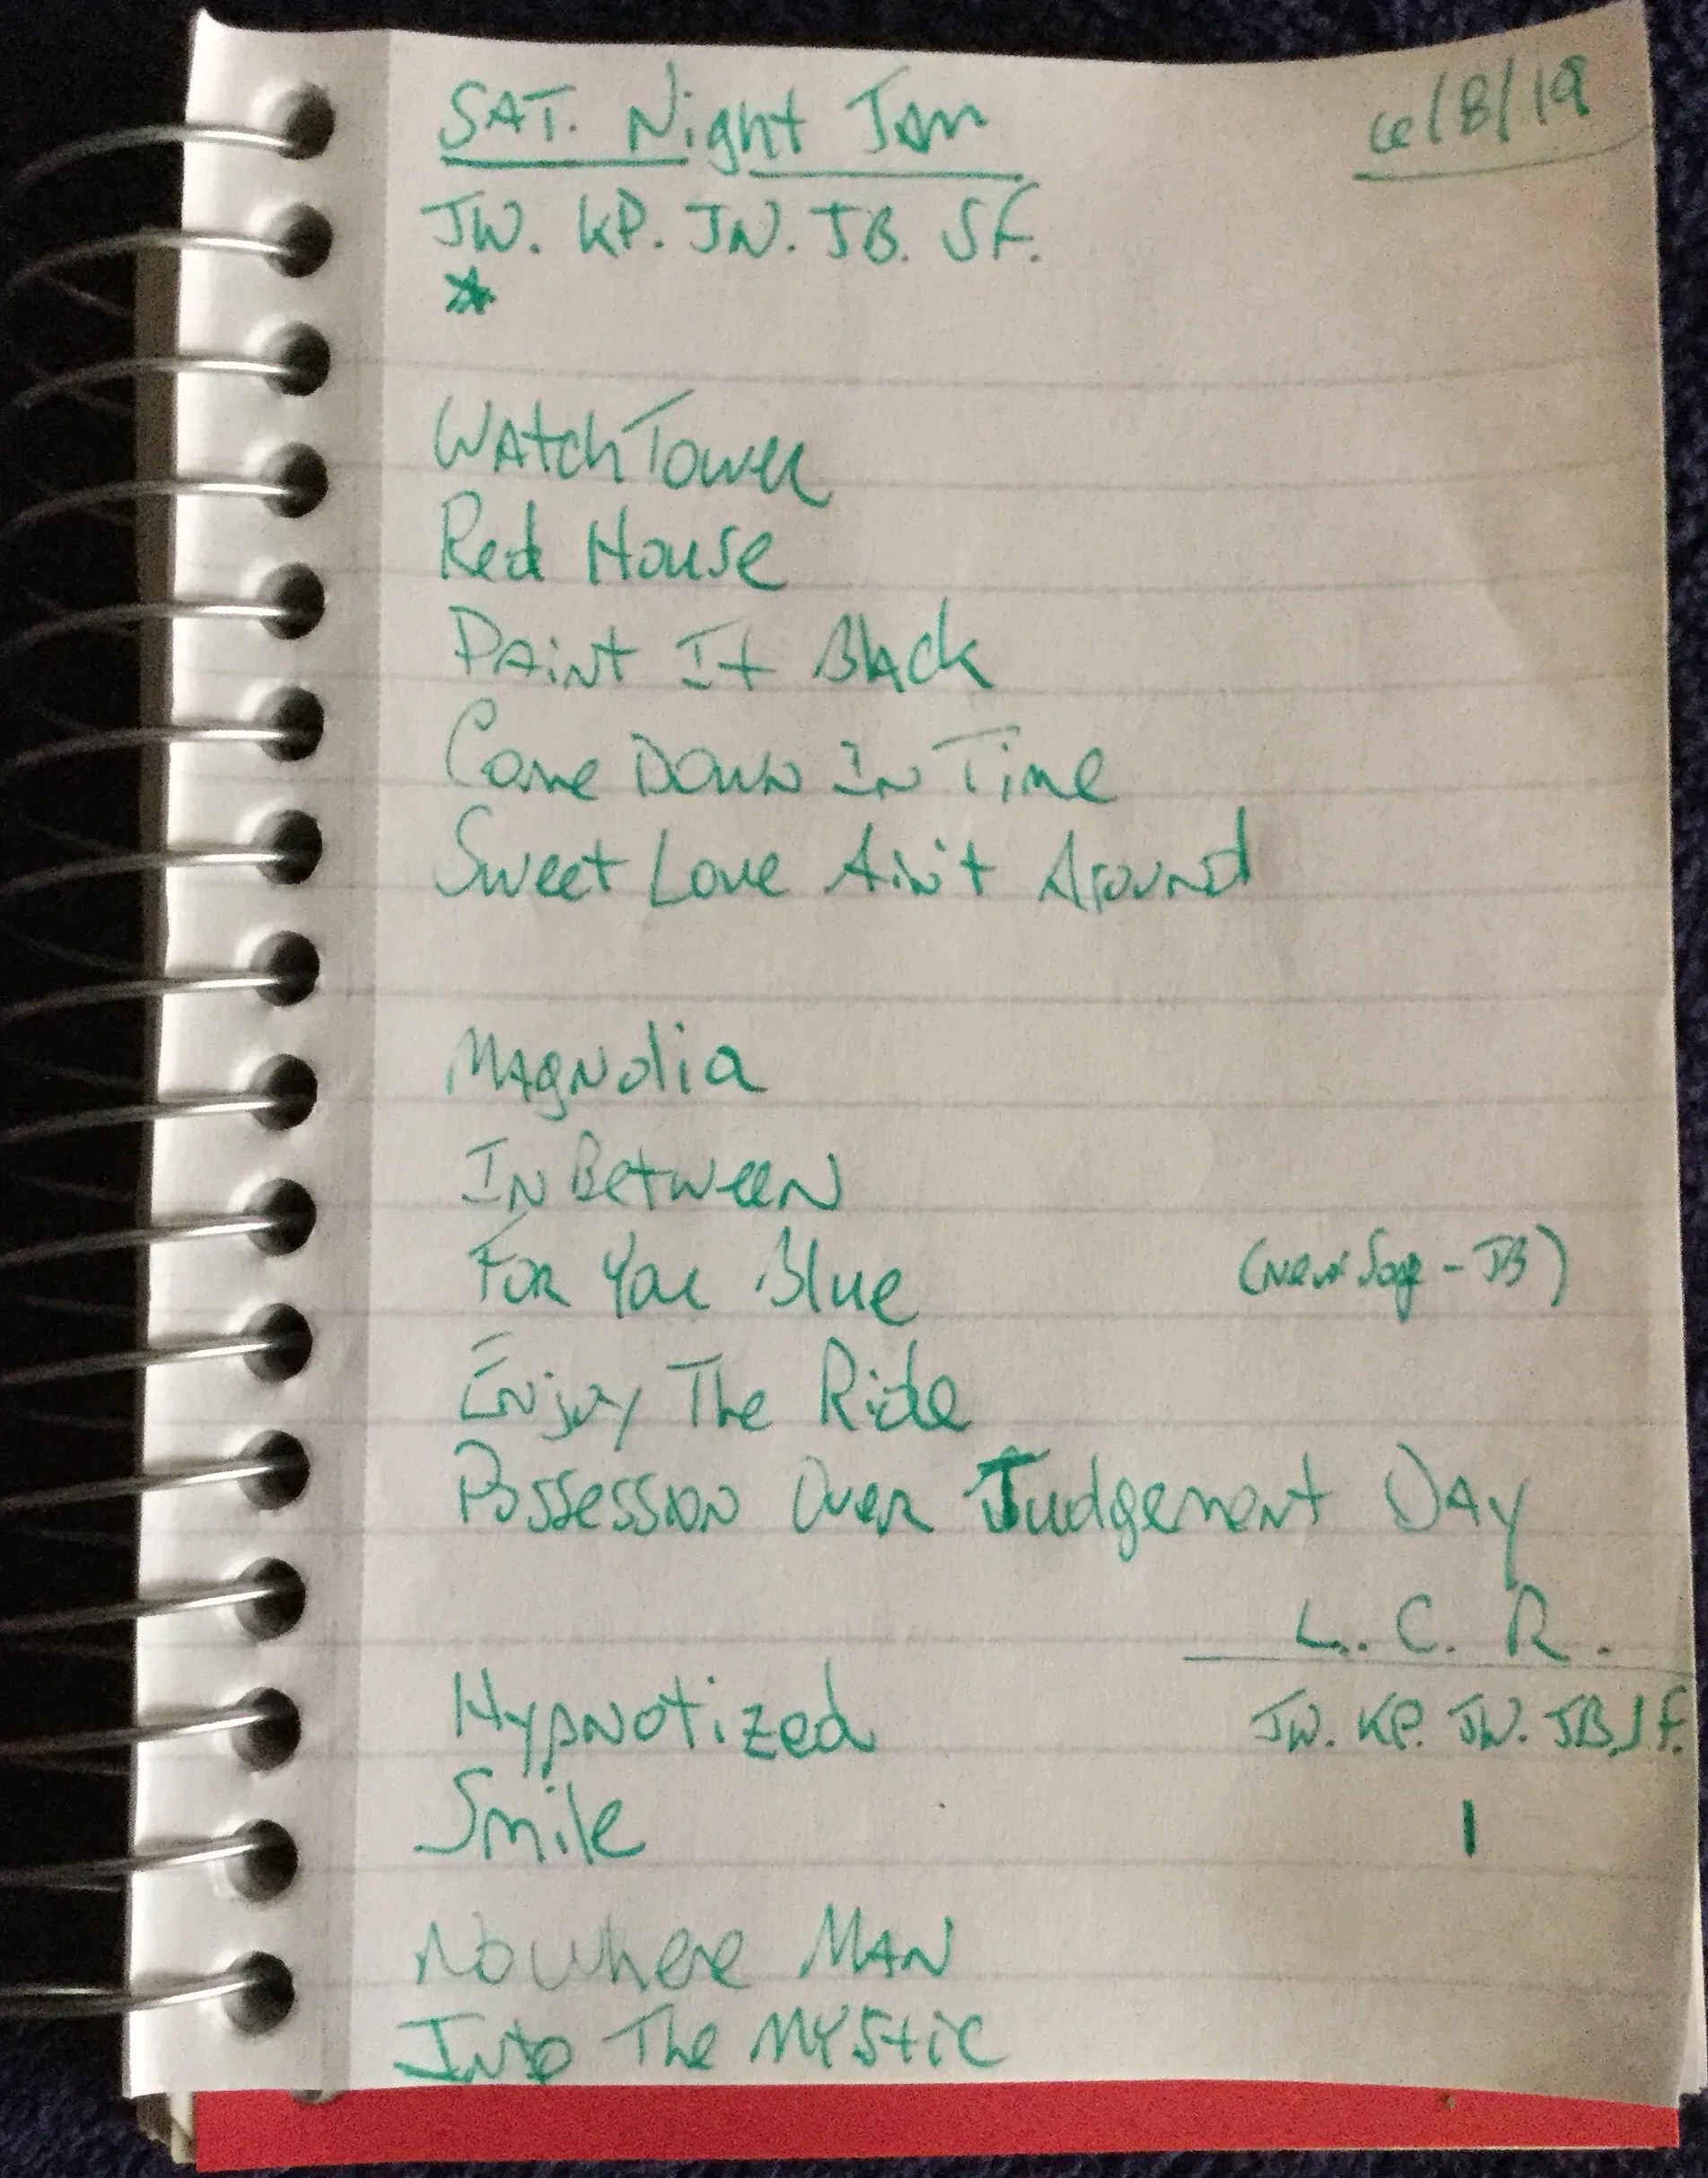 SAT. Night Jam 6/8/19
JW. KP. JN. JB. SF.
Watch Tower
Red House
Paint It Black
Come Down In Time
Sweet Love Ain't Around
Magnolia
In Between
For You Blue (New Song - JB)
Enjoy The Ride
Possession Over Judgement Day
L. C. R.
Hypnotized JW. KP. JW. JB. SF.
Smile 1
Nowhere Man
Into The Mystic